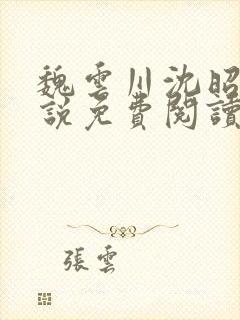 魏雲川沈昭
説免費閱讀
張雲